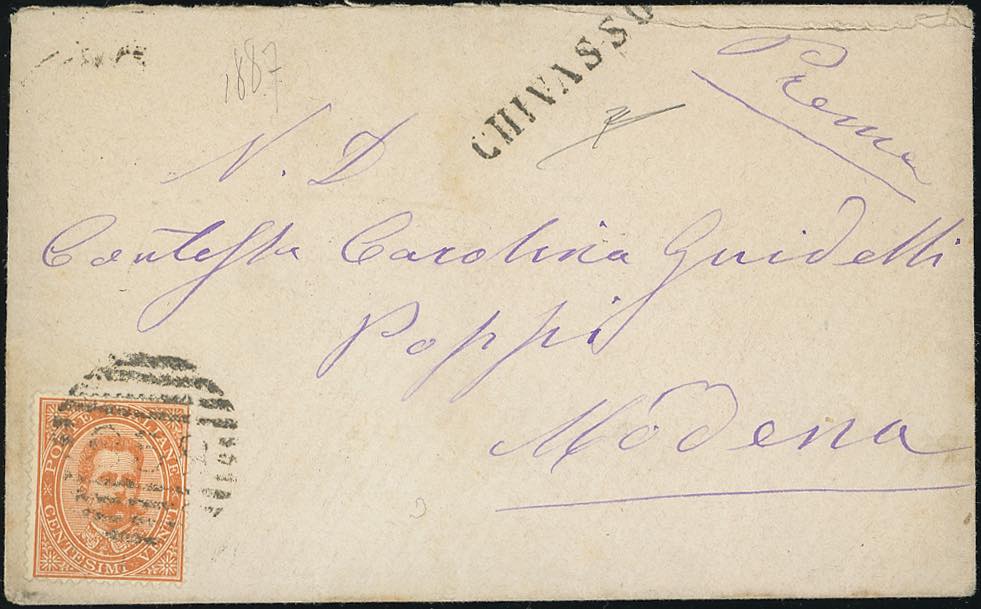 1887
CHIVASSO
Preme
N. D
Contessa Carolina Guidelli
Poppi
Modena
POSTE ITALIANE
CENTESIMI VENTI